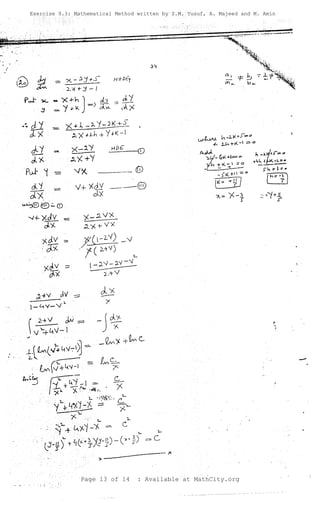 Exercise 9.3: Mathematical Method written by S.M. Yusuf, A. Majeed and M. Amin
24
(20) dy/dx = x-2y+5 / 2x+y-1 NHDE a₁/a₂ ≠ b₁/b₂
Put x = X+h
y = Y+k } => dy/dx = dY/dX
∴ dY/dX = X+h-2Y-2k+5 / 2X+2h+Y+k-1
where h-2k+5=0
& 2h+k-1=0
dY/dX = X-2Y / 2X+Y HDE (I)
Add
Put Y = VX (II)
-5k+11=0
5h+3=0
k=11/5
dY/dX = V+XdV/dX (III)
using (II) (III) in (I)
V+XdV/dX = X-2VX / 2X+VX
XdV/dX = X(1-2V) / X(2+V) - V
XdV/dX = 1-2V-2V-V² / 2+V
2+V / 1-4V-V² dV = dX/X
∫ 2+V / V²+4V-1 dV = -∫ dX/X
1/2 [ln(V²+4V-1)] = -lnX + lnC
ln√V²+4V-1 = ln C/X
√Y²/X² + 4Y/X - 1 = C/X
Y²+4XY-X² / X² = C²/X²
Y²+4XY-X² = C²
(y-11/5)²+4(x+3/5)(y-11/5)-(x+3/5)² = C²
Page 13 of 14 : Available at MathCity.org